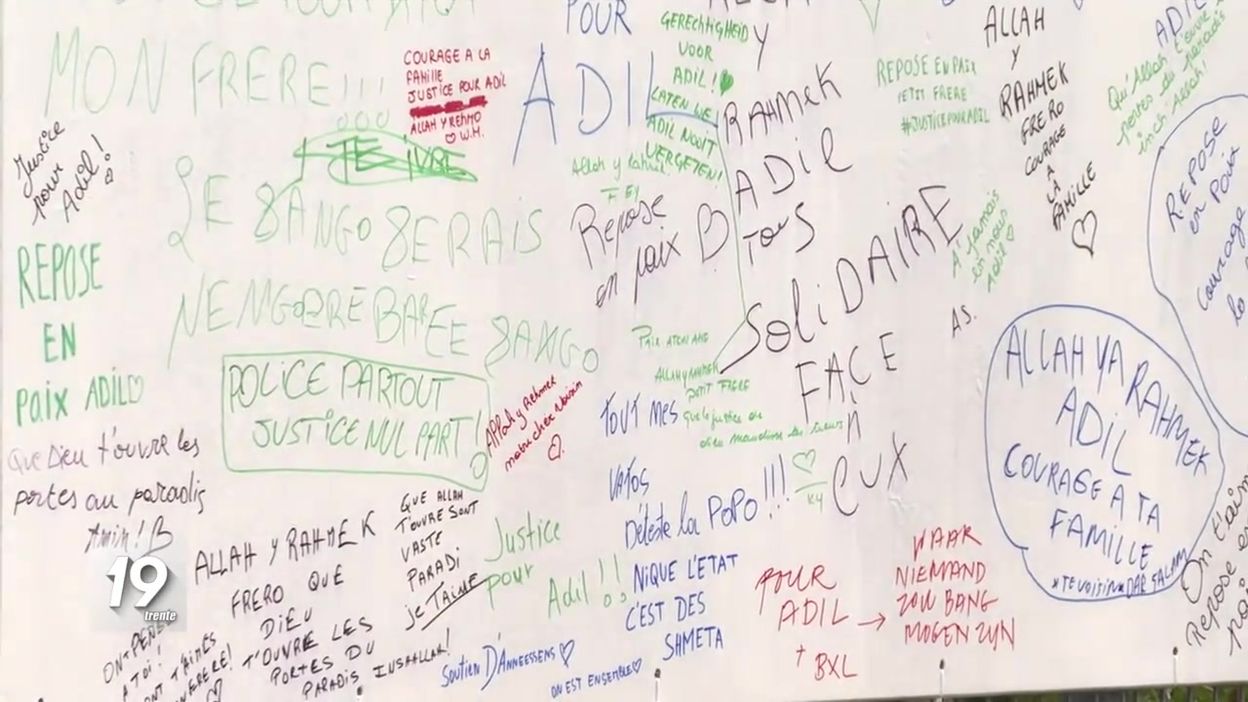 MON FRERE !!!
Justice
pour
Adil !
REPOSE
EN
PAIX ADIL
Que Dieu t'ouvre les
portes au paradis
Amin ! B
19
trente
COURAGE A LA
FAMILLE
JUSTICE POUR ADIL
ALLAH Y REHMO
W.H.
LE SANG SERAIS
POLICE PARTOUT
JUSTICE NUL PART !
Allah y Rehmek
ALLAH Y RAHMEK
FRERO QUE
DIEU
T'OUVRE LES
PORTES DU
PARADIS INSHALLAH!
A TOI !
QUE ALLAH
T'OUVRE SONT
VASTE
PARADI
je T'AIME
Justice
pour
Adil !!
Soutien D'ANNEESSENS
ON EST ENSEMBLE
POUR
ADIL
GERECHTIGHEID
VOOR
ADIL !
LATEN WE
ADIL NOOIT
VERGETEN!
Repose
en paix
Y
RAHMEK
ADIL
TOUS
SOLIDAIRE
FACE
CUX
ALLAH Y RAHMEK
PETIT FRERE
TOUT MES
VATOS
Déteste la POPO !!!
NIQUE L'ETAT
C'EST DES
SHMETA
POUR
ADIL →
† BXL
WAAR
NIEMAND
ZOU BANG
MOGEN ZIJN
REPOSE EN PAIX
PETIT FRERE
#JUSTICEPOURADIL
ALLAH
Y
RAHMEK
FRERO
COURAGE
A
LA
FAMILLE
A jamais
en nous
Adil
AS.
ADIL
Qu'Allah t'ouvre les
portes du paradis
inch Allah!
REPOSE
en Paix
courage
ALLAH YA
RAHMEK
ADIL
COURAGE A TA
FAMILLE
*TEVOISIN*DAR SALAM
On t'aim
Repose en